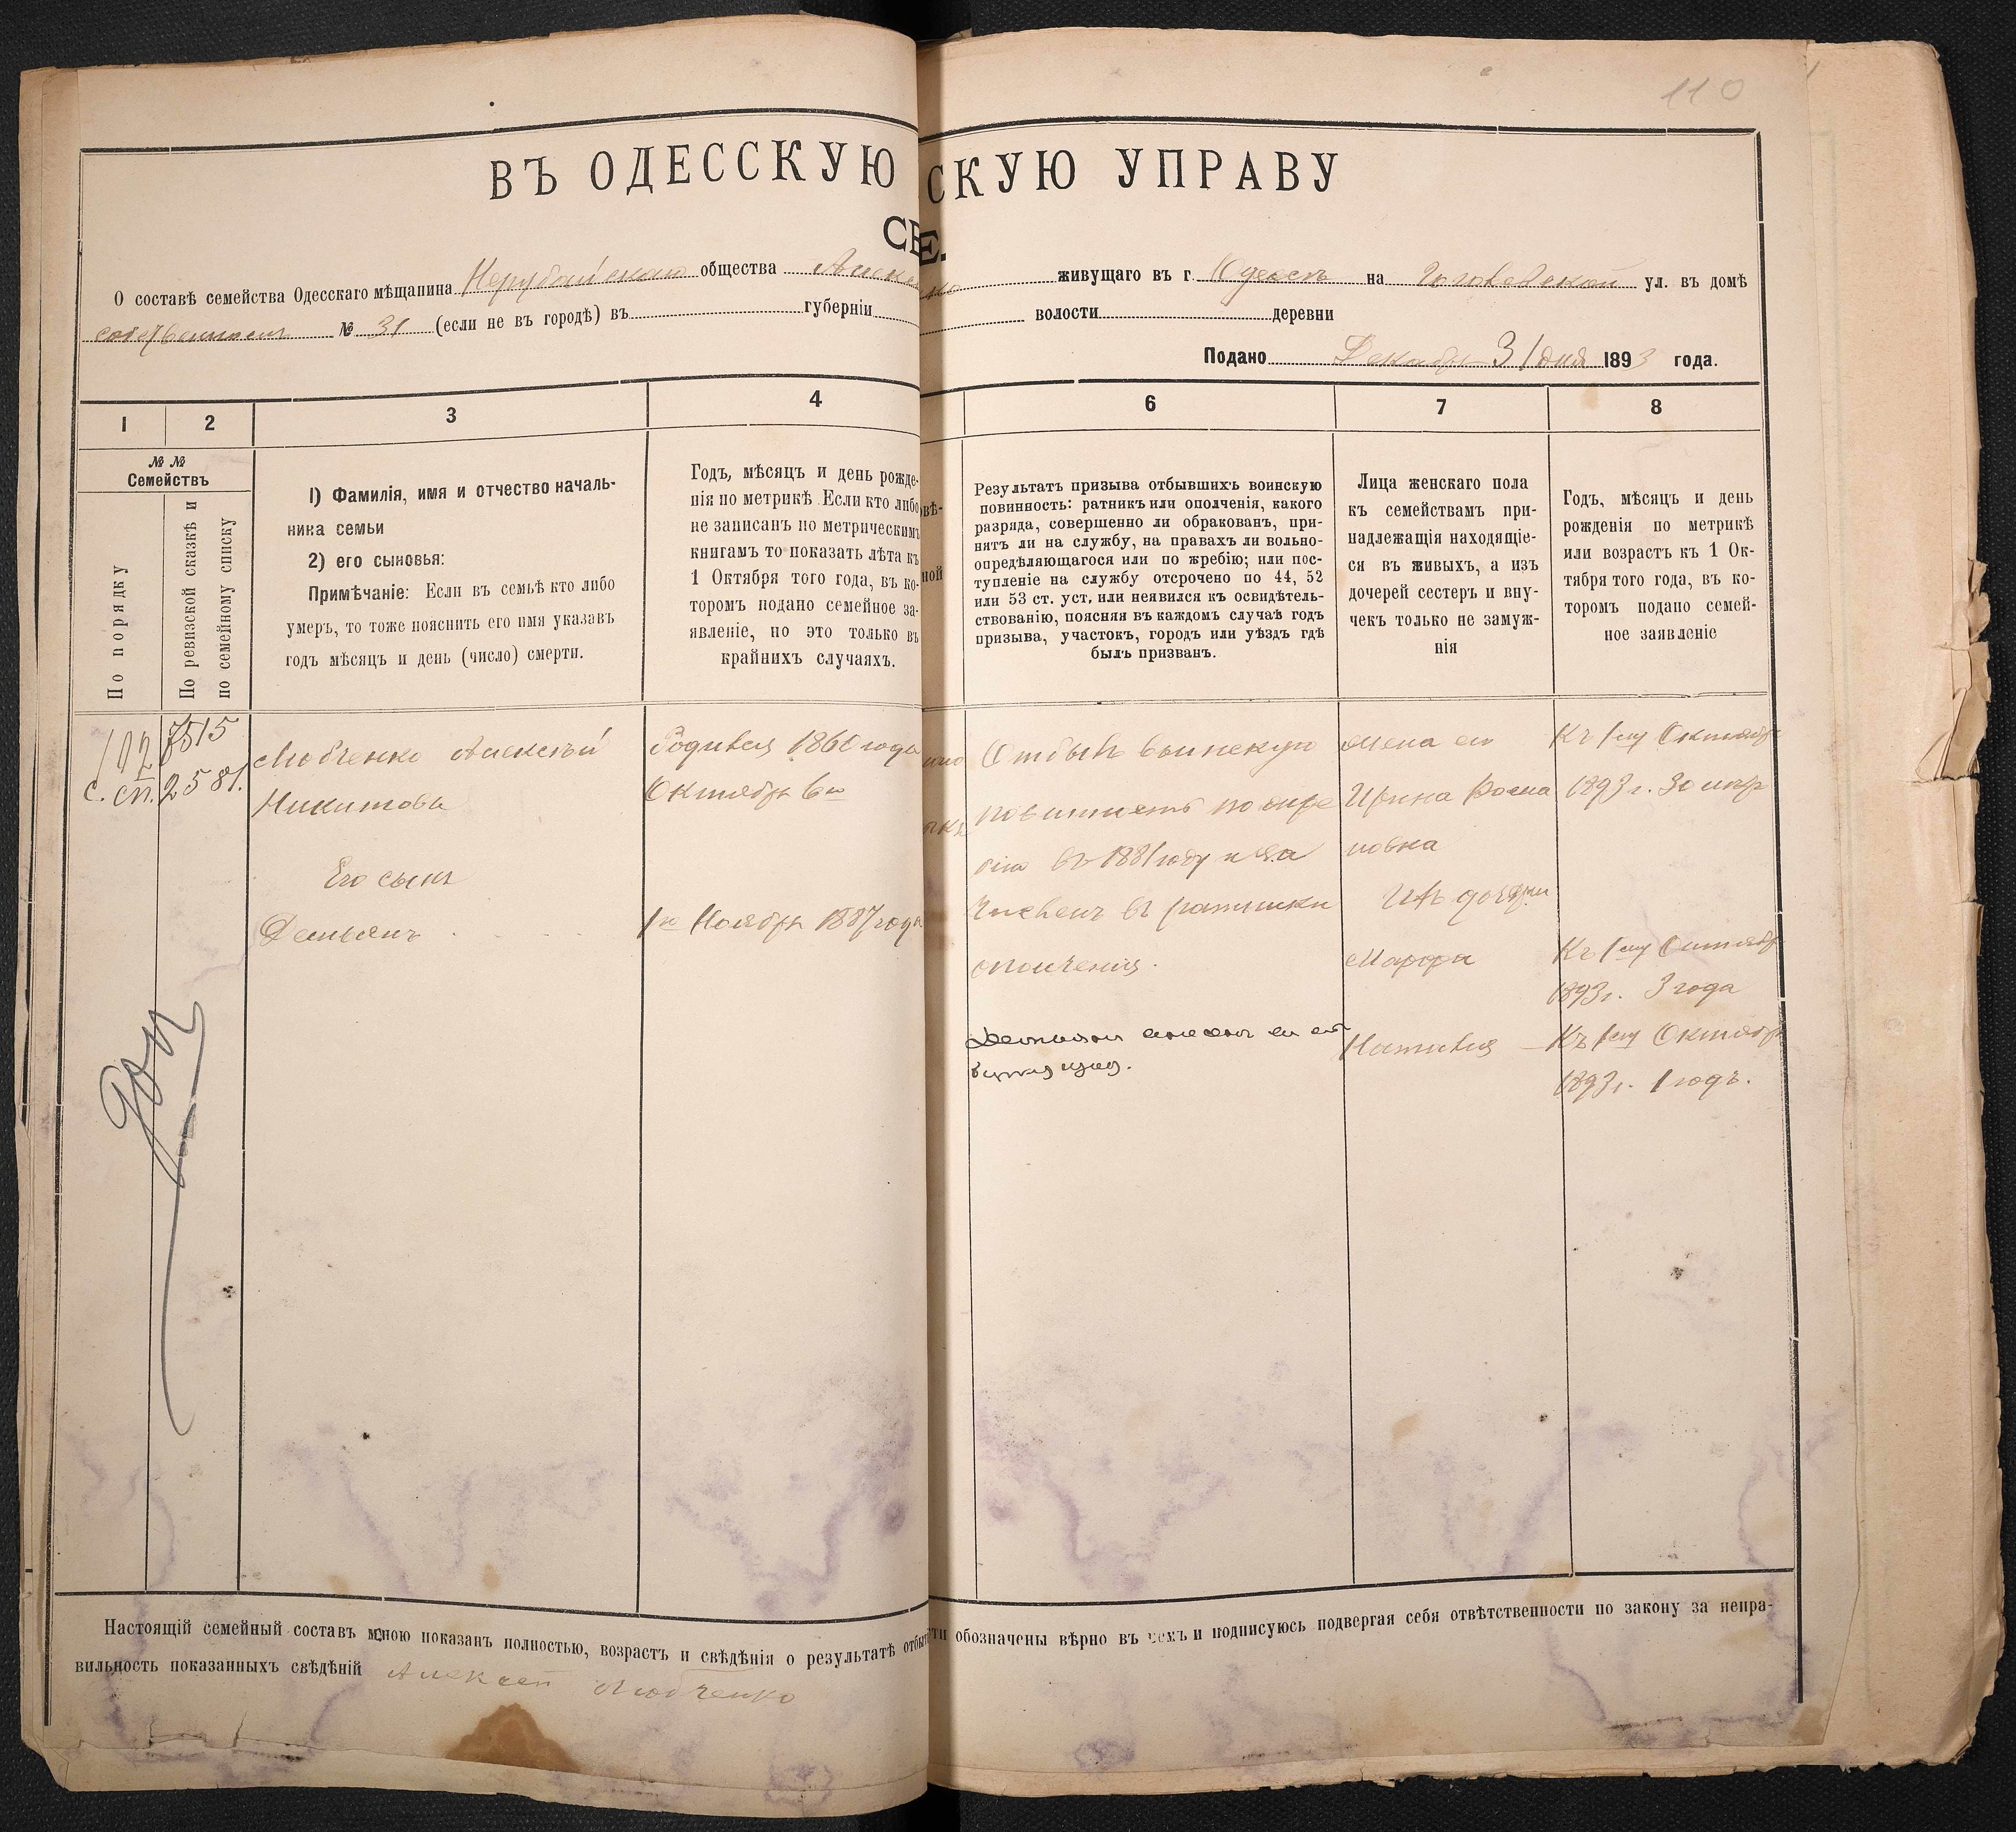 110
ВЪ ОДЕССКУЮ СКУЮ УПРАВУ
СЕ
О составѣ семейства Одесскаго мѣщанина Нерубайскаго общества живущаго въ г. Одессѣ на ул. въ домѣ
собственномъ № 31 (если не въ городѣ) въ губерніи волости деревни
Подано Декабря 31 дня 1893 года.
1 2 3 4 6 7 8
№ №
Семействъ
По порядку
По ревизской сказкѣ и
по семейному списку
1) Фамилія, имя и отчество началь-
ника семьи
2) его сыновья:
Примѣчаніе: Если въ семьѣ кто либо
умеръ, то тоже пояснить его имя указавъ
годъ мѣсяцъ и день (число) смерти.
Годъ, мѣсяцъ и день рожде-
нія по метрикѣ. Если кто либо
не записанъ по метрическимъ
книгамъ то показать лѣта къ
1 Октября того года, въ ко-
торомъ подано семейное за-
явленіе, но это только въ
крайнихъ случаяхъ.
вѣ-
ной
Результатъ призыва отбывшихъ воинскую
повинность: ратникъ или ополченія, какого
разряда, совершенно ли обракованъ, при-
нятъ ли на службу, на правахъ ли вольно-
опредѣляющагося или по жребію; или пос-
тупленіе на службу отсрочено по 44, 52
или 53 ст. уст. или неявился къ освидѣтель-
ствованію, поясняя въ каждомъ случаѣ годъ
призыва, участокъ, городъ или уѣздъ гдѣ
былъ призванъ.
Лица женскаго пола
къ семействамъ при-
надлежащія находящіе-
ся въ живыхъ, а изъ
дочерей сестеръ и вну-
чекъ только не замуж-
нія
Годъ, мѣсяцъ и день
рожденія по метрикѣ
или возрастъ къ 1 Ок-
тября того года, въ ко-
торомъ подано семей-
ное заявленіе
102
с. сп.
7515
2581.
Любченко Алексѣй
Никитовъ
Его сынъ
Демьянъ
Родился 1860 года
Октября 6го
1го Ноября 1887 года
Отбылъ воинскую
повинность по жре
бію въ 1881 году и за
численъ въ ратники
ополченія.
жена его
Ирина Рома
новна
Ихъ дочери
Марфа
Наталія
Къ 1му Октября
1893 г. 30 лѣтъ
Къ 1му Октября
1893 г. 3 года
Къ 1му Октября
1893 г. 1 годъ.
Настоящій семейный составъ мною показанъ полностью, возрастъ и свѣдѣнія о результатѣ отбы ти обозначены вѣрно въ чемъ и подписуюсь подвергая себя отвѣтственности по закону за непра-
вильность показанныхъ свѣдѣній Алексей Любченко